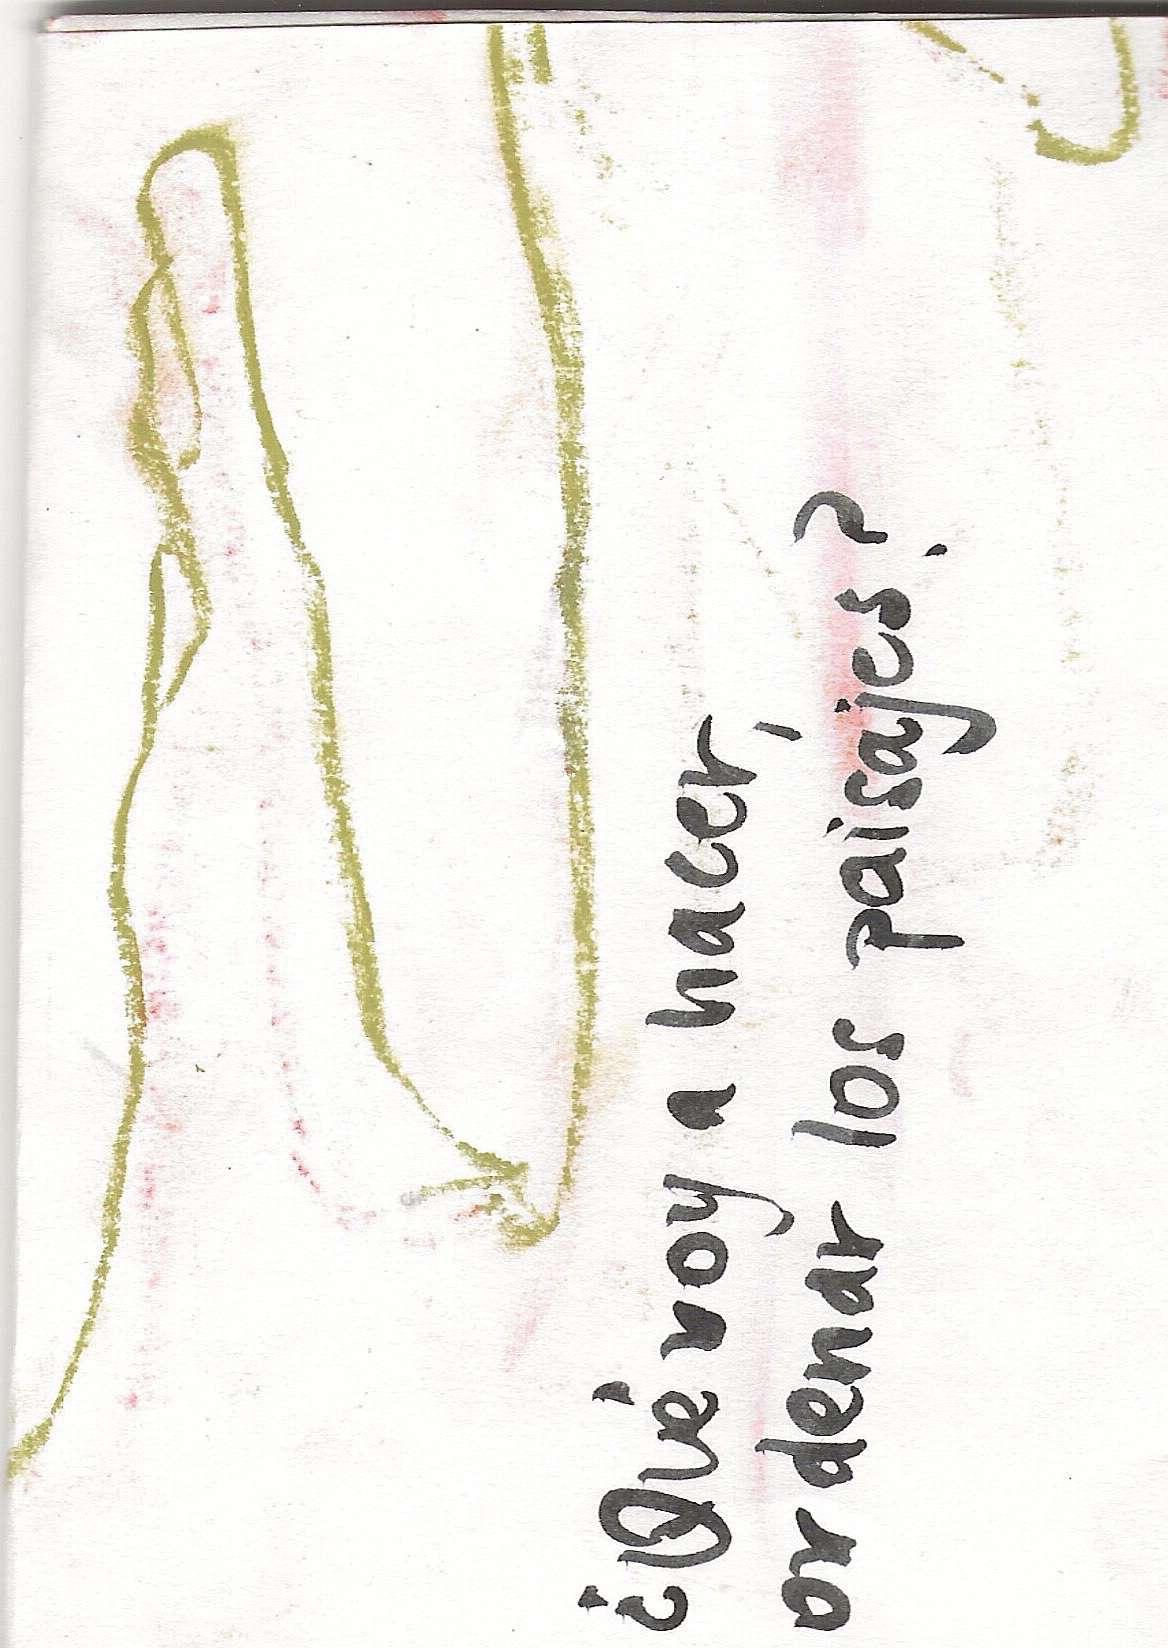 ¿Qué voy a hacer,
ordenar los paisajes?